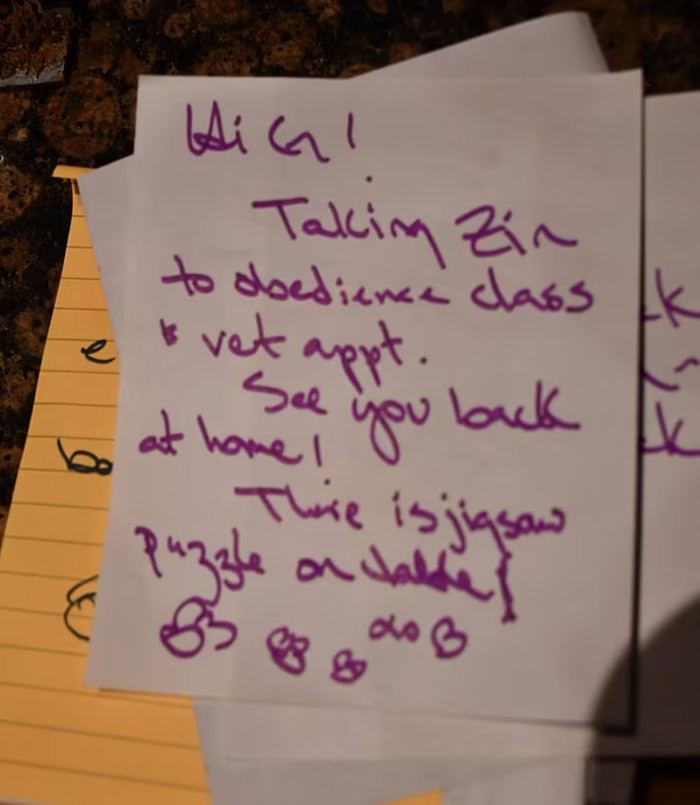 Hi G!
Taking Zin
to obedience class
& vet appt.
See you back
at home!
There is jigsaw
puzzle on table!
e
b
k
k